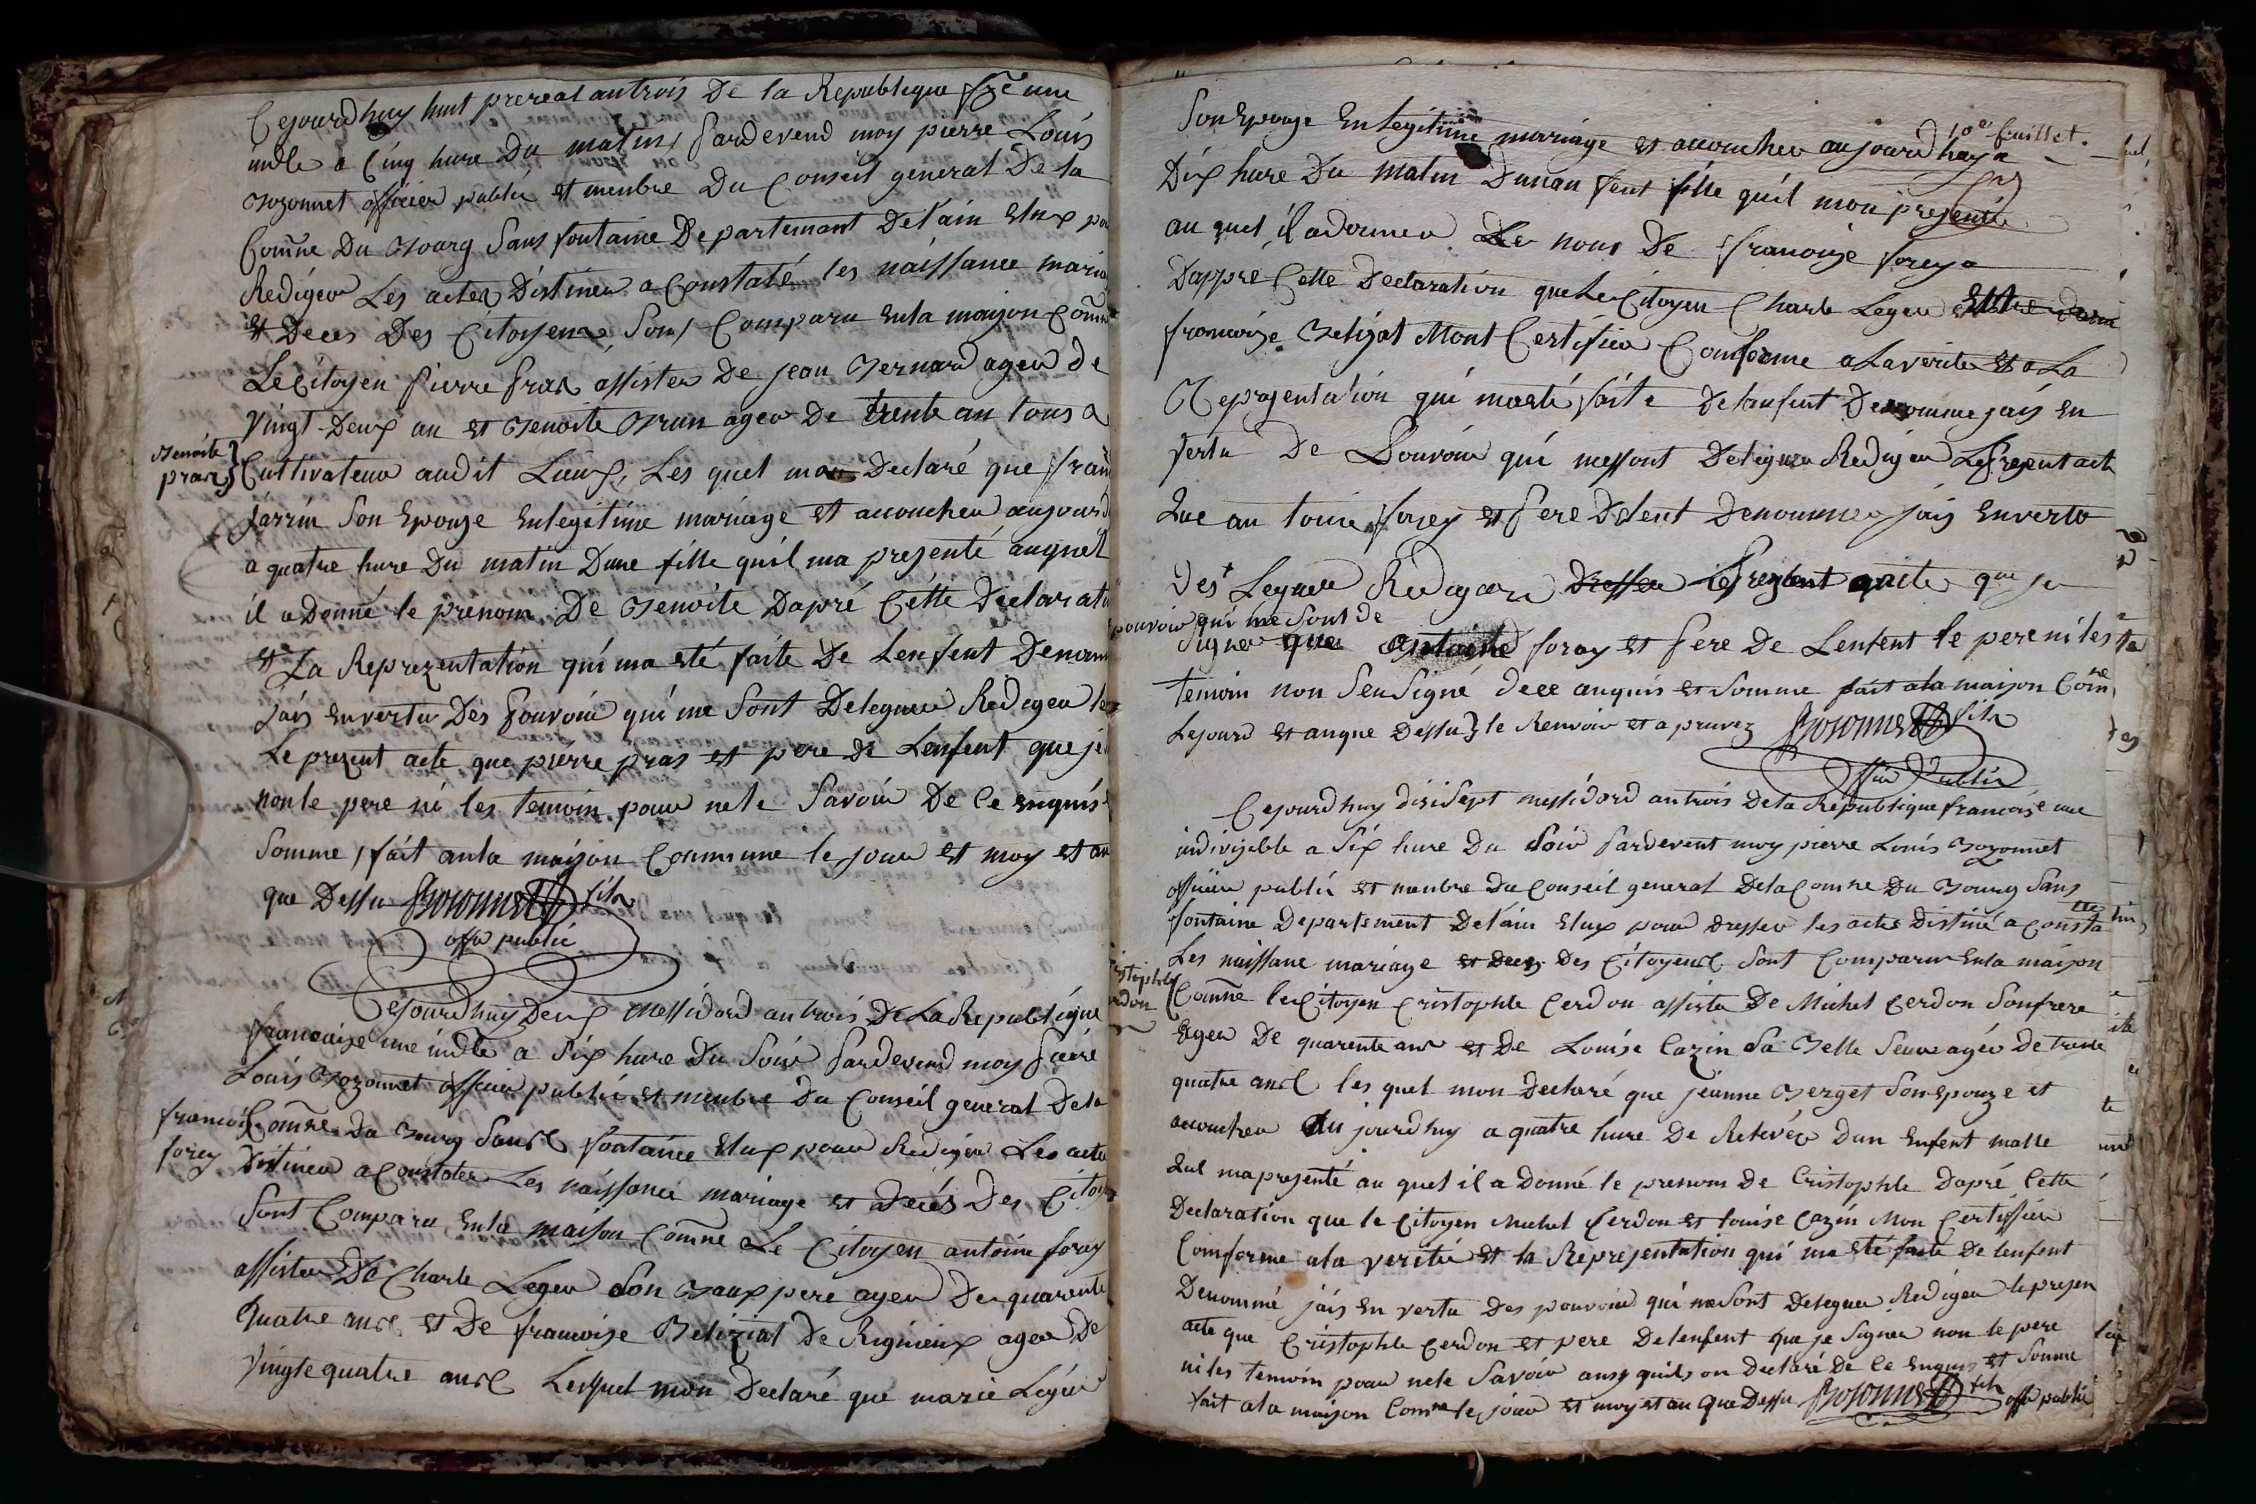 Cejourdhuy huit prereal antrois De la Republique fçe une
indle a Cinq hure Du matin, Pardevend moy pierre Louis
Bozonnet officier public et menbre Du Conseil general De la
Comne Du Bourg Sans fontaine Departement Delain Elux pou
Redigeo Les actes Distineo a Constaté les naissance maria
et Deces Des Citoyens, Sont Comparu Enla maison Comne
Le Citoyen Pierre Pras assisteo De jean Bernard ageo de
Vingt Deux an et Benoite Brun ageo De trente an tous a
Benoite
pras
Cultivateur audit Lieux, Les quel mon Declaré que fran
Jarrin Son Epouze Enlegitime mariage et accoucheo aujourd
a quatre hure Du matin Dune fille quil ma presenté auquel
il a Donné le prenom De Benoite Dapré Cette Declaratio
et La Reprezentation qui ma eté faite De Lenfent Denom
Jais envertu Des Pouvoir qui me Sont Delegueo Redigeo le
Le prezent acte que pierre pras et pere De Lenfent que je
non le pere ni les temoin pour nele Savoir De Ce enquis
Somme, fait anla maison Commune le jour et moy et an
que Dessu Bozonnet fils
offr public
Cejourdhuy Deux Messidord antrois De La Republique
francaise une indle a Six hure Du Soir Pardevend moy Pierre
Louis Bozonnet officier public et menbre Du Conseil general Dela
francois
forey
Comne Du Bourg Sans fontaine Elux pour Redigeo Les acte
Distineo a Constateo Les naissance mariage et Decés Des Citoy
Sont Comparu Enla maison Comne Le Citoyen antoine forey
assisteo De Charle Legeo Son Baux pere ageo De quarente
Quatre ans et De francoise Belizial De Rignieux ageo De
Vingte quatre ans Lesquel mon Declaré que marie Legeo
10e feuillet.
Son Epouze En Legitime mariage et accoucheo aujourdhuy a
Dix hure Du matin Dunan fent fille quil mon presenté
au quel il adonneo Le nom De francoize forey
Dappre Cette Declaration que Le Citoyen Charle Legeo
francoize Belizal Mont Certifieo Conforme a La verite et a La
Representation qui maeté faite Delanfent Denommé jais En
Vertu De Pouvoir qui messont Delegueo Redigeo Le present acte
Que an toine forey et Pere Delent Denommeo jais Enverto
des Legueo Redigeo Dresseo le Present acte que je
pouvoir qui me Sont de
Signeo que antoine forey et Pere De Lenfent le pere ni les
temoin non Seu Signé dece anquis et Somme fait ala maison Comne
Lejourd et anque Dessu le Renvoir et apruvez Bozonnet fils
offir Public
Cejourdhuy disisept messidord antrois Dela Republique francoise une
indivizible a Six hure Du Soir Pardevent moy pierre Louis Bozonnet
officier public et menbre Du Conseil general Dela Comne Du Bourg Sans
fontaine Departement Delain Elux pour Dresseo les actes Distiné a Consta
tte
Les naissane mariage et Deces Des Citoyens Sont Comparu Enla maison
istophle
erdon
Comne le Citoyen Cristophle Cerdon assiste De Michel Cerdon Sonfrere
ageo De quarente ans et De Louise Cazin Sa Belle Seur agée De trente
quatre ans les quel mon Declaré que jeanne Berget Son epouze et
accoucheo Aujourdhuy a quatre hure De Relevée Dun Enfent malle
Quil ma presenté au quel il a Donné le prenom De Cristophle Dapré Cette
Declaration que le Citoyen Michel Cerdon et Louise Cazin Mon Certiffieo
Conforme ala verité et la Representation qui ma eté faite De lenfent
Denommé jais En vertu Des pouvoir qui me Sont Delegueo Redigeo le presen
acte que Cristophle Cerdon et pere Delenfent que je Signeo non le pere
ni les temoin pour nele Savoir ansy quils on Declaré De Ce enquis et Somme
fait ala maison Comne le jour et moy et an que Dessu Bozonnet fils offr public